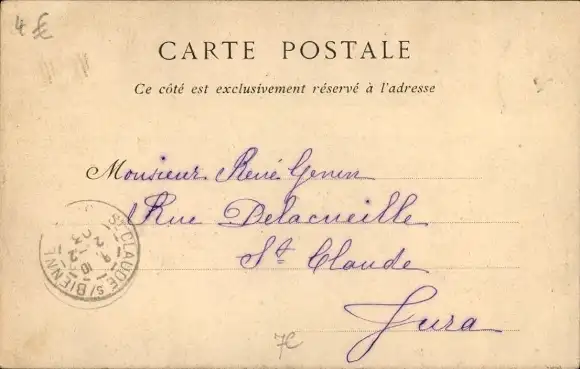 4 €
CARTE POSTALE
Ce côté est exclusivement réservé à l'adresse
Monsieur René Genin
Rue Delacueille
St Claude
Jura
ST CLAUDE S/ BIENNE
7€